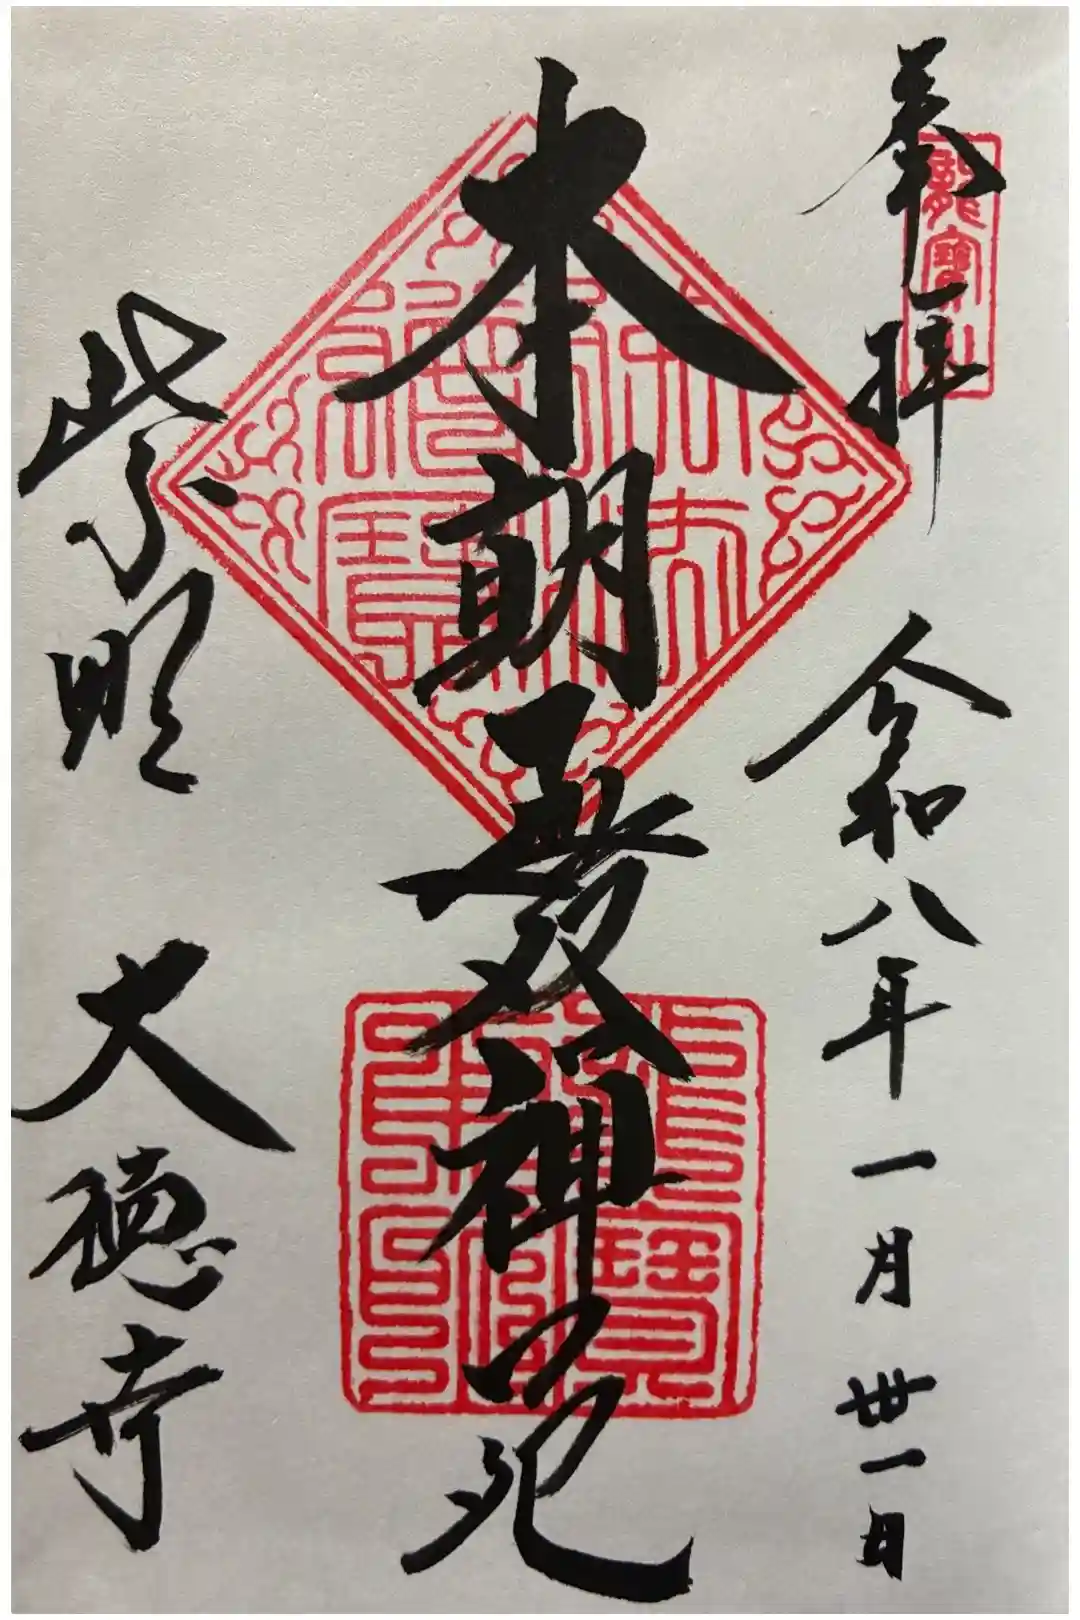 奉拝
龍寶山
令和八年一月卅一日
本朝無双禅苑
紫野 大徳寺